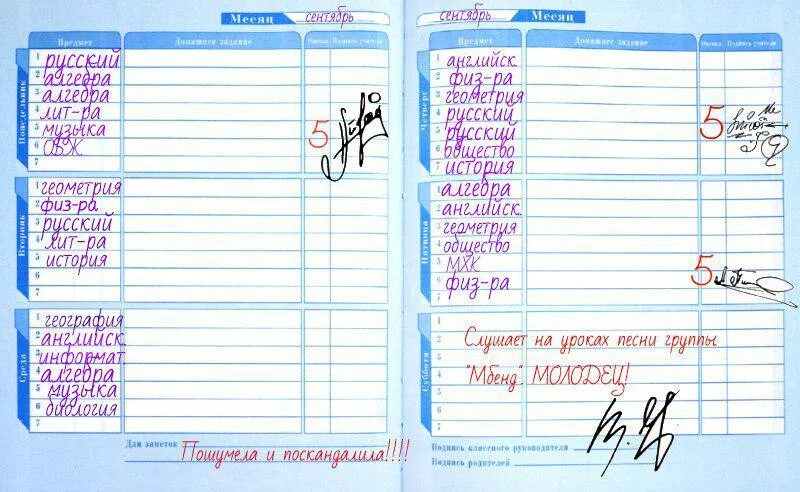 Месяц сентябрь
Предмет Домашнее задание Оценка Подпись учителя
Понедельник
1 русский
2 алгебра
3 алгебра
4 лит-ра
5 музыка 5
6 ОБЖ
7
Вторник
1 геометрия
2 физ-ра
3 русский
4 лит-ра
5 история
6
7
Среда
1 география
2 английск.
3 информат.
4 алгебра
5 музыка
6 биология
7
Для заметок Пошумела и поскандалила!!!!
сентябрь Месяц
Предмет Домашнее задание Оценка Подпись учителя
Четверг
1 английск.
2 физ-ра
3 геометрия
4 русский 5
5 русский
6 общество
7 история
Пятница
1 алгебра
2 английск.
3 геометрия
4 общество
5 МХК 5
6 физ-ра
7
Суббота
1
2 Слушает на уроках песни группы
3
4 "Мбенд". МОЛОДЕЦ!
5
6
7
Подпись классного руководителя
Подпись родителей